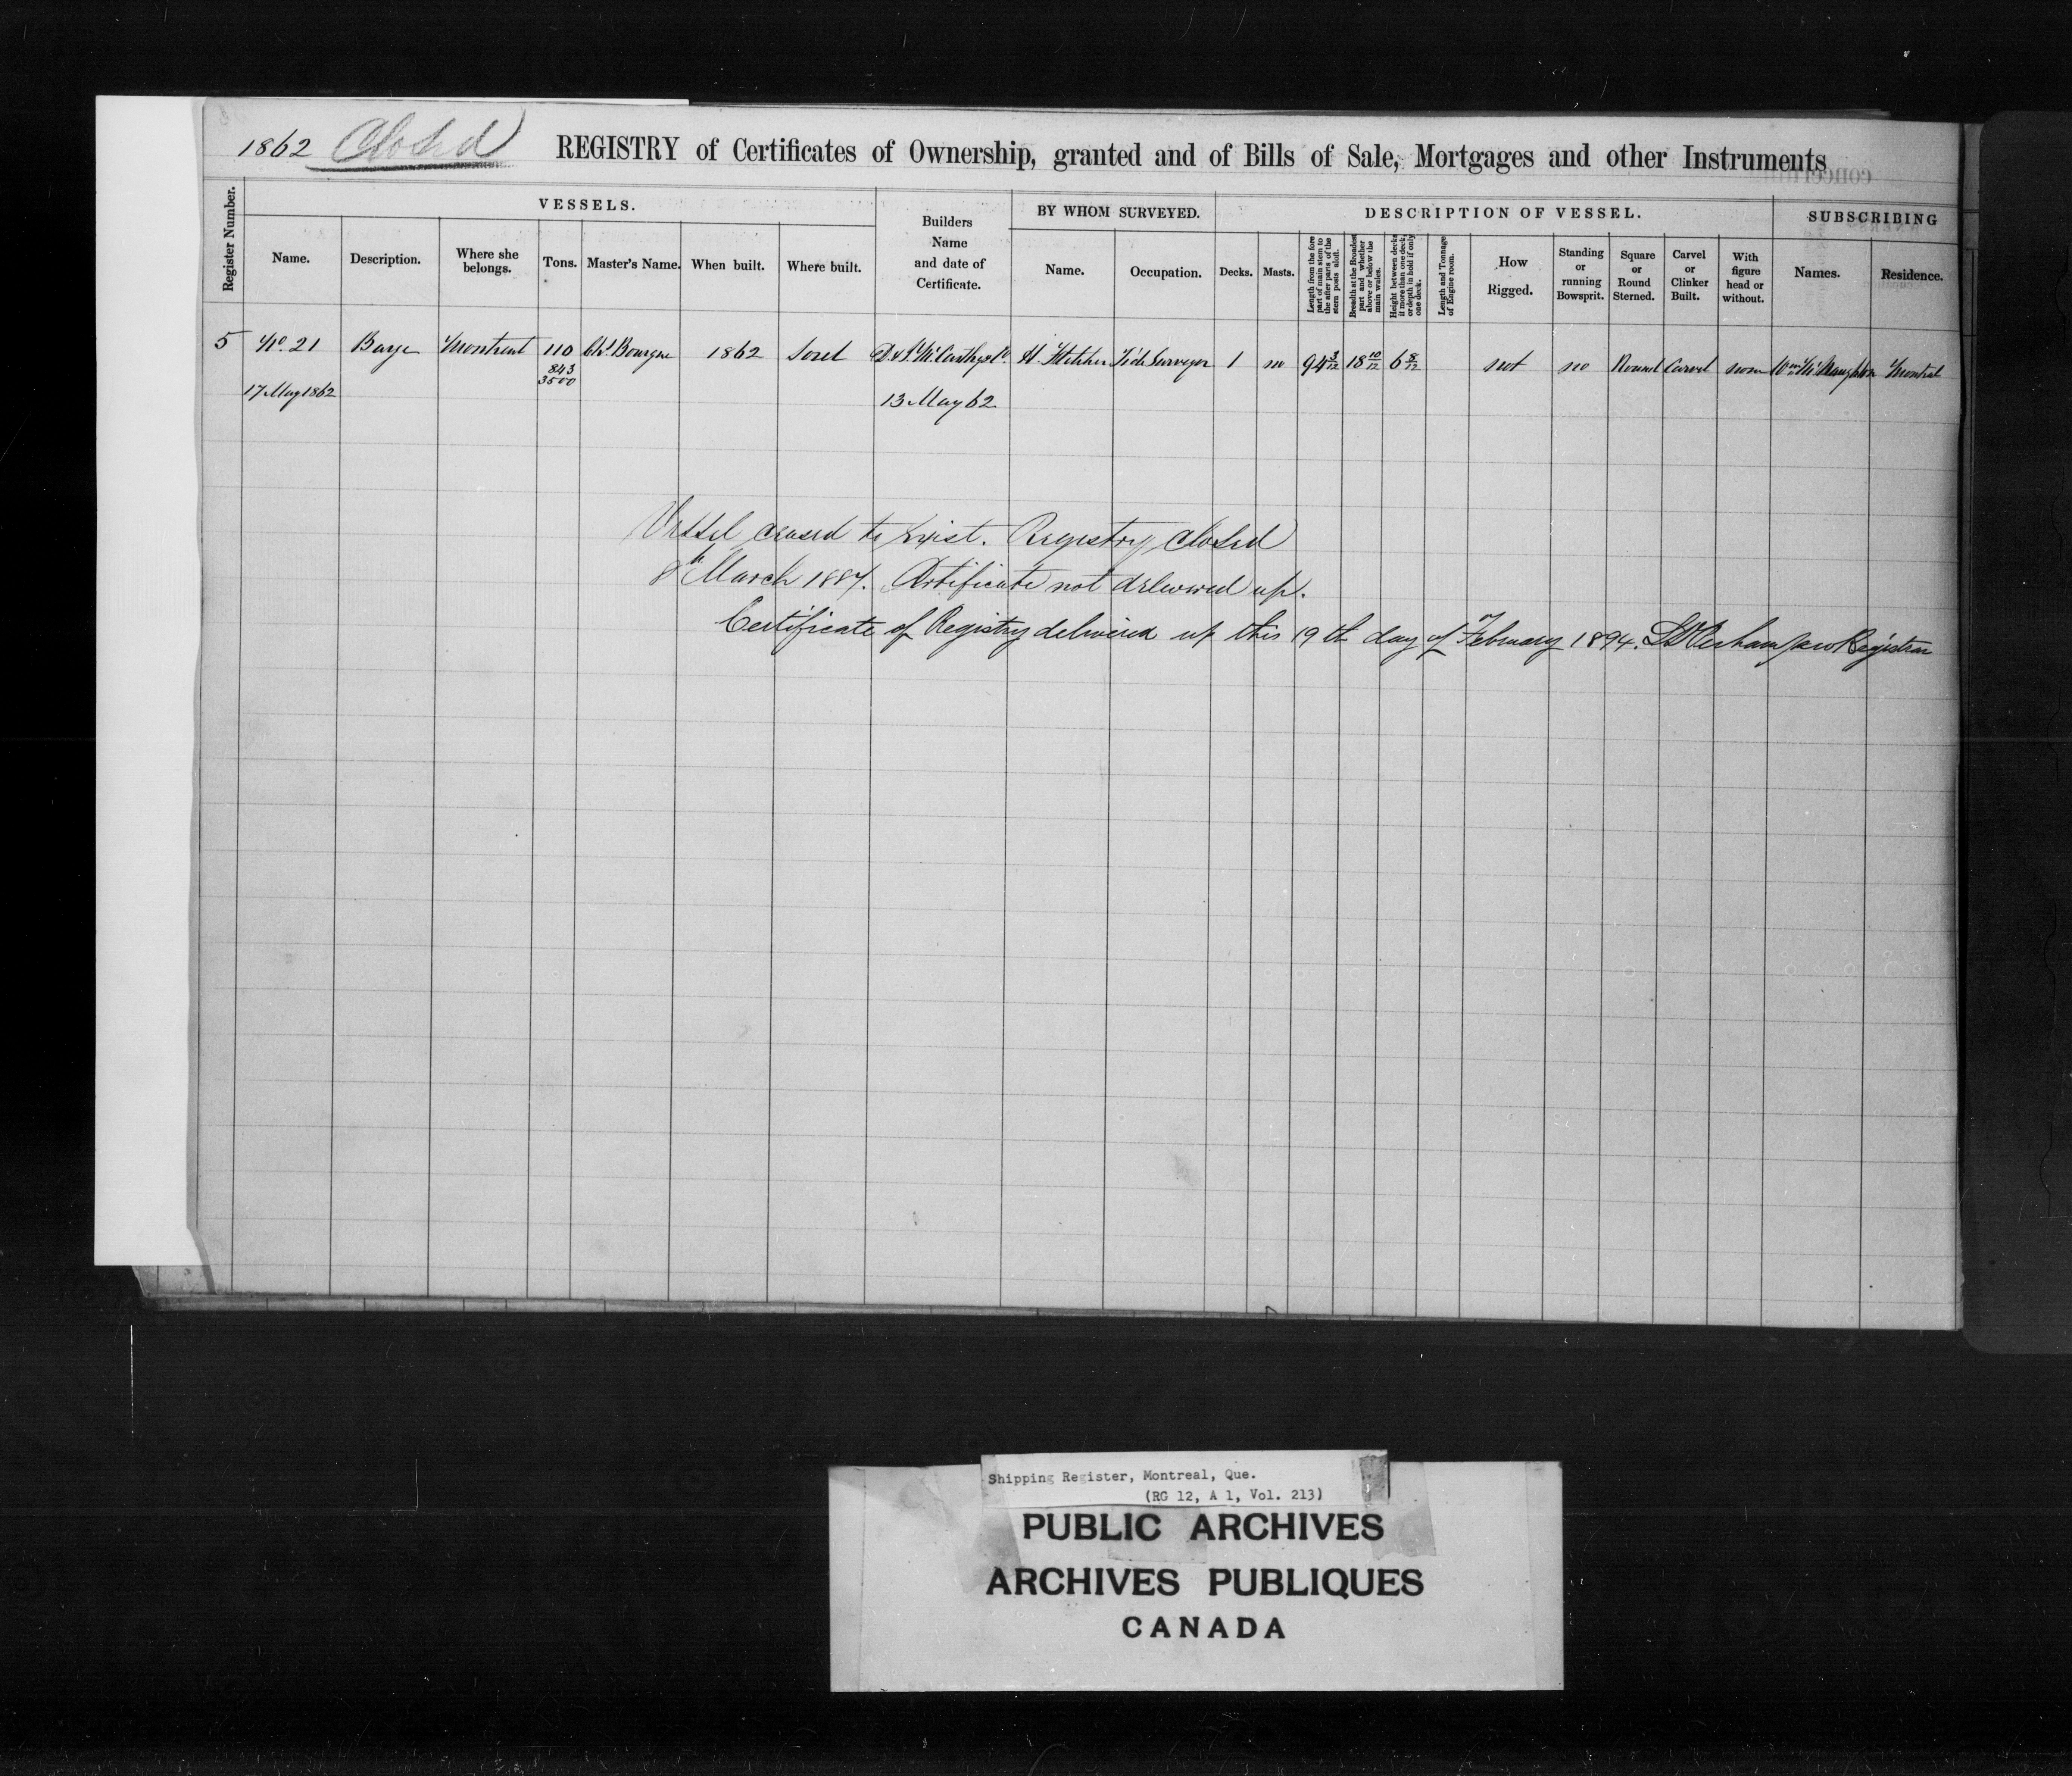 1862 Closed REGISTRY of Certificates of Ownership, granted and of Bills of Sale, Mortgages and other Instruments
Register Number.
VESSELS.
Name.
Description.
Where she
belongs.
Tons.
Master's Name.
When built.
Where built.
Builders
Name
and date of
Certificate.
BY WHOM SURVEYED.
Name.
Occupation.
DESCRIPTION OF VESSEL.
Decks.
Masts.
Length from the fore
part of main stem to
the after parts of the
stern posts aloft.
Breadth at the Broadest
part and whether
above or below the
main wales.
Height between decks
if more than one deck,
or depth in hold if only
one deck.
Length and Tonnage
of Engine room.
How
Rigged.
Standing
or
running
Bowsprit.
Square
or
Round
Sterned.
Carvel
or
Clinker
Built.
With
figure
head or
without.
SUBSCRIBING
Names.
Residence.
5 No. 21 Barge Montreal 110 Bourgue 1862 Sorel D. & J. McCarthy & Co. H. Fletcher Tide Surveyor 1 no 94 3/12 18 10/12 6 8/12 not no Round Carvel none Wm McNaughton Montreal
843
3500
17 May 1862
13 May 62
Vessel ceased to exist. Registry closed
8th March 1887. Certificate not delivered up.
Certificate of Registry delivered up this 19th day of February 1894. Registrar
Shipping Register, Montreal, Que.
(RG 12, A 1, Vol. 213)
PUBLIC ARCHIVES
ARCHIVES PUBLIQUES
CANADA